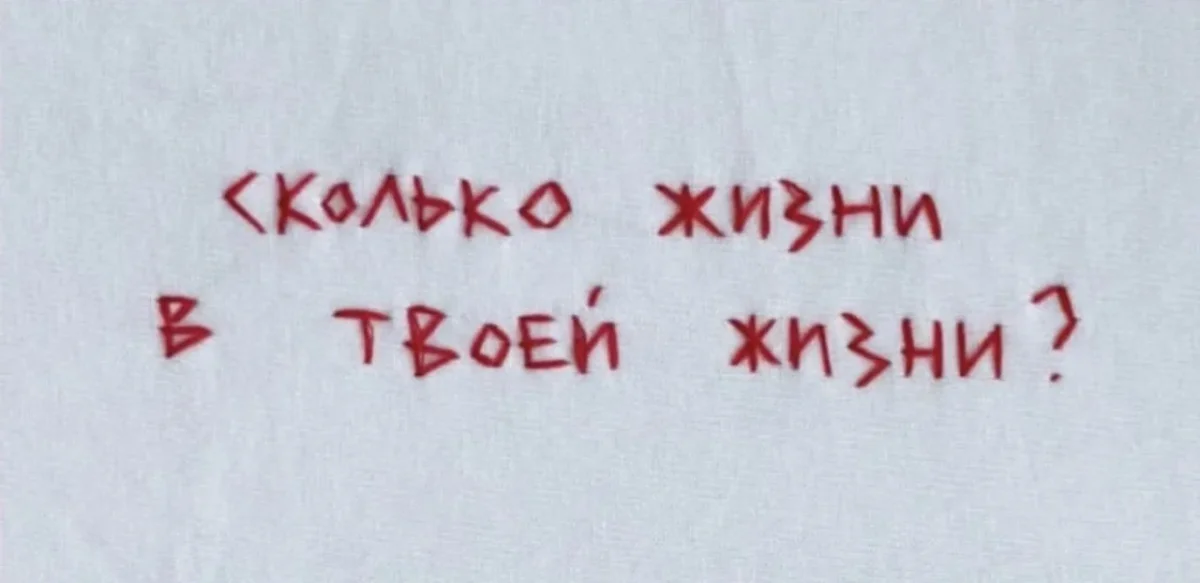 сколько жизни
в твоей жизни?